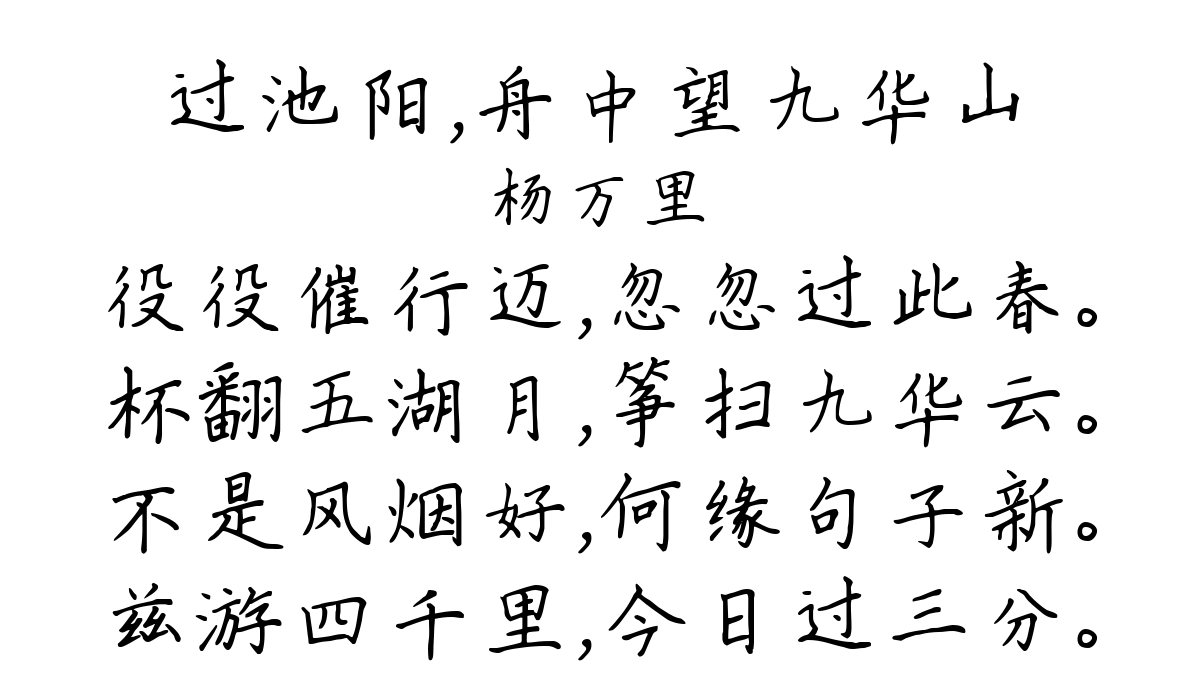 过池阳,舟中望九华山
杨万里
役役催行迈,忽忽过此春。
杯翻五湖月,筝扫九华云。
不是风烟好,何缘句子新。
兹游四千里,今日过三分。